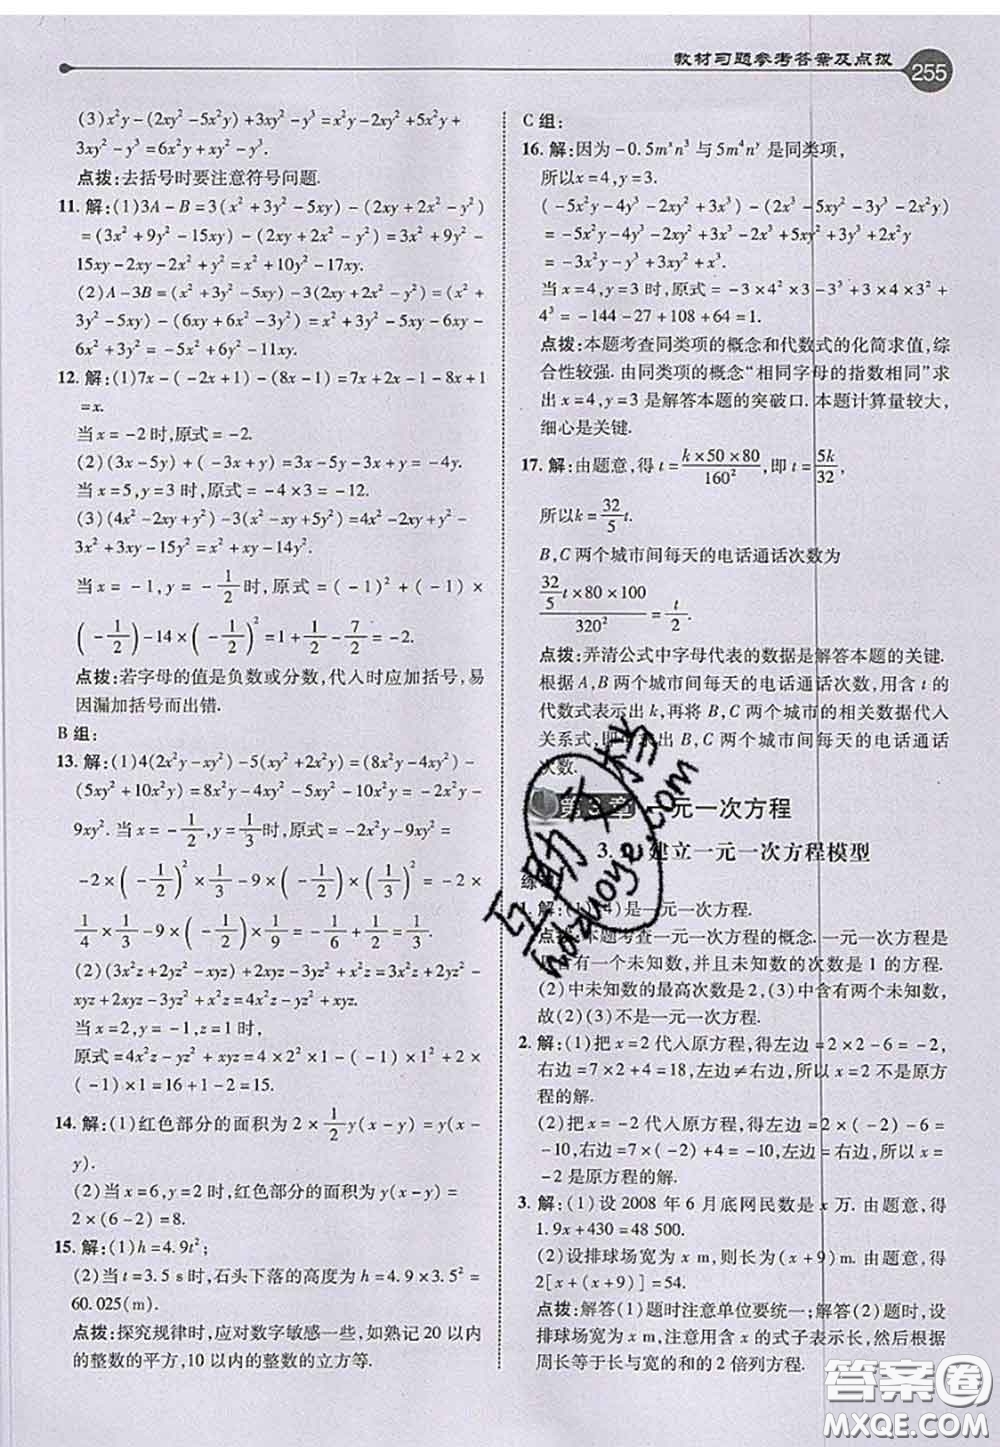 教材习题参考答案及点拨 255
(3)x²y-(2xy²-5x²y)+3xy²-y³=x²y-2xy²+5x²y+
3xy²-y³=6x²y+xy²-y³.
点拨:去括号时要注意符号问题.
11. 解:(1)3A-B=3(x²+3y²-5xy)-(2xy+2x²-y²)
=(3x²+9y²-15xy)-(2xy+2x²-y²)=3x²+9y²-
15xy-2xy-2x²+y²=x²+10y²-17xy.
(2)A-3B=(x²+3y²-5xy)-3(2xy+2x²-y²)=(x²+
3y²-5xy)-(6xy+6x²-3y²)=x²+3y²-5xy-6xy-
6x²+3y²=-5x²+6y²-11xy.
12. 解:(1)7x-(-2x+1)-(8x-1)=7x+2x-1-8x+1
=x.
当x=-2时,原式=-2.
(2)(3x-5y)+(-3x+y)=3x-5y-3x+y=-4y.
当x=5,y=3时,原式=-4×3=-12.
(3)(4x²-2xy+y²)-3(x²-xy+5y²)=4x²-2xy+y²-
3x²+3xy-15y²=x²+xy-14y².
当x=-1,y=-1/2时,原式=(-1)²+(-1)×
(-1/2)-14×(-1/2)²=1+1/2-7/2=-2.
点拨:若字母的值是负数或分数,代入时应加括号,易
因漏加括号而出错.
B组:
13. 解:(1)4(2x²y-xy²)-5(xy²+2x²y)=(8x²y-4xy²)-
(5xy²+10x²y)=8x²y-4xy²-5xy²-10x²y=-2x²y-
9xy².当x=-1/2,y=1/3时,原式=-2x²y-9xy²=
-2×(-1/2)²×1/3-9×(-1/2)×(1/3)²=-2×
1/4×1/3-9×(-1/2)×1/9=-1/6+1/2=1/3.
(2)(3x²z-2yz²+xyz)+(x²z+yz²-xyz)=3x²z-
2yz²+xyz+x²z+yz²-xyz=4x²z-yz².
当x=2,y=-1,z=1时,
原式=4x²z-yz²=4×2²×1-(-1)×1²=4×4×1-
(-1)×1=16+1-2=15.
14. 解:(1)红色部分的面积为2×1/2y(x-y)=y(x-
y).
(2)当x=6,y=2时,红色部分的面积为y(x-y)=
2×(6-2)=8.
15. 解:(1)h=4.9t²;
(2)当t=3.5 s时,石头下落的高度为h=4.9×3.5²=
60.025(m).
点拨:探究规律时,应对数字敏感一些,如熟记20以内
的整数的平方,10以内的整数的立方等.
C组:
16. 解:因为-0.5mˣn³与5m⁴nʸ是同类项,
所以x=4,y=3.
(-5x²y-4y³-2xy²+3x³)-(2x³-5xy²-3y³-2x²y)
=-5x²y-4y³-2xy²+3x³-2x³+5xy²+3y³+2x²y
=-3x²y-y³+3xy²+x³.
当x=4,y=3时,原式=-3×4²×3-3³+3×4×3²+
4³=-144-27+108+64=1.
点拨:本题考查同类项的概念和代数式的化简求值,综
合性较强.由同类项的概念“相同字母的指数相同”求
出x=4,y=3是解答本题的突破口.本题计算量较大,
细心是关键.
17. 解:由题意,得t=k×50×80/160²,即t=5k/32,
所以k=32/5t.
B,C两个城市间每天的电话通话次数为
32/5t×80×100/320²=t/2.
点拨:弄清公式中字母代表的数据是解答本题的关键.
根据A,B两个城市间每天的电话通话次数,用含t的
代数式表示出k,再将B,C两个城市的相关数据代入
关系式,即可求出B,C两个城市间每天的电话通话
次数.
第3章 一元一次方程
3. 建立一元一次方程模型
练
1. 解:(1)(4)是一元一次方程.
点拨:本题考查一元一次方程的概念.一元一次方程是
含有一个未知数,并且未知数的次数是1的方程.
(2)中未知数的最高次数是2,(3)中含有两个未知数,
故(2)(3)不是一元一次方程.
2. 解:(1)把x=2代入原方程,得左边=2×2-6=-2,
右边=7×2+4=18,左边≠右边,所以x=2不是原方
程的解.
(2)把x=-2代入原方程,得左边=2×(-2)-6=
-10,右边=7×(-2)+4=-10,左边=右边,所以x=
-2是原方程的解.
3. 解:(1)设2008年6月底网民数是x万.由题意,得
1.9x+430=48 500.
(2)设排球场宽为x m,则长为(x+9)m.由题意,得
2[x+(x+9)]=54.
点拨:解答(1)题时注意单位要统一;解答(2)题时,设
排球场宽为x m,注意用含x的式子表示长,然后根据
周长等于长与宽的和的2倍列方程.
互助文档
hdzuoye.com
答案圈
MXQE.COM